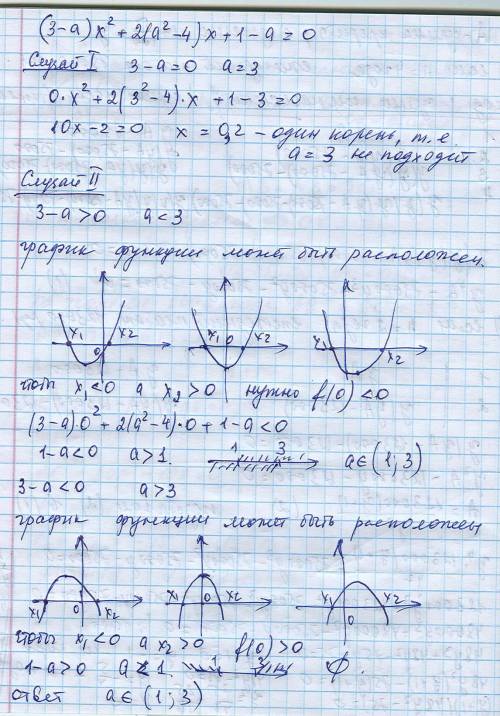 (3-a)x² + 2(a²-4)x + 1-a = 0
Случай I 3-a=0 a=3
0·x² + 2(3²-4)·x + 1-3=0
10x-2=0 x = 0,2 - один корень, т.е
a=3 не подходит
Случай II
3-a>0 a<3
график функции может быть расположен.
x₁ 0 x₂ x₁ 0 x₂ x₁ x₂
чтобы x₁<0 а x₂>0 нужно f(0)<0
(3-a)0² + 2(a²-4)·0 + 1-a<0
1-a<0 a>1. 1 3 a∈(1;3)
3-a<0 a>3
график функции может быть расположен
x₁ 0 x₂ x₁ 0 x₂ x₁ 0 x₂
чтобы x₁<0 а x₂>0 f(0)>0
1-a>0 a<1. 1 3 ∅.
ответ a∈(1;3)